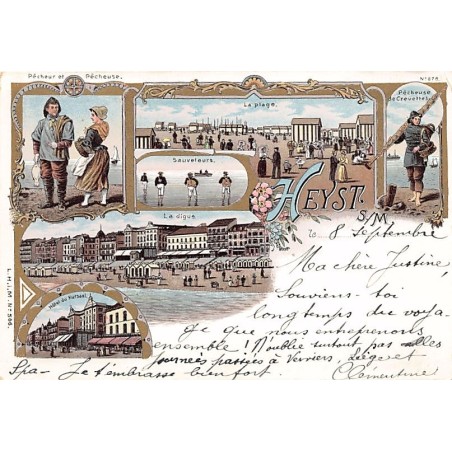 Pêcheur et Pêcheuse.
No 276.
La plage.
Pêcheuse
de Crevettes.
Sauveteurs.
HEYST.
S/M
La digue
le 8 Septembre
Ma chère Justine,
Souviens-toi
longtemps du voya-
ge que nous entreprenons
ensemble! N'oublie surtout pas les
journées passées à Verviers, Liège et
Spa- Je t'embrasse bien fort. Clémentine
Hôtel du Kursaal.
L.H.i.M. No 596.